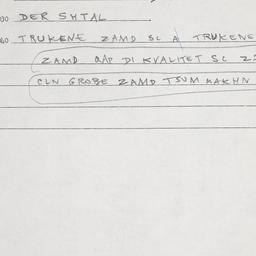 030 DER SHTAL
060 TRUKENE ZAMD SC A TRUKENE
ZAMD QAP DI KVALITET SC
CLN GROBE ZAMD TSUM MAKHN